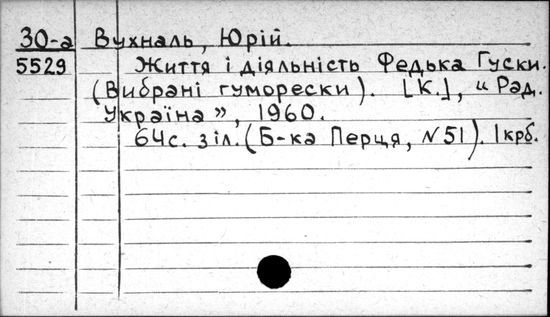 30-а Вухналь, Юрій.
5529 Життя і діяльність Федька Гуски.
(Вибрані гуморески). [К.], „Рад.
Україна", 1960.
64с. з іл. (Б-ка Перця, №51). 1крб.